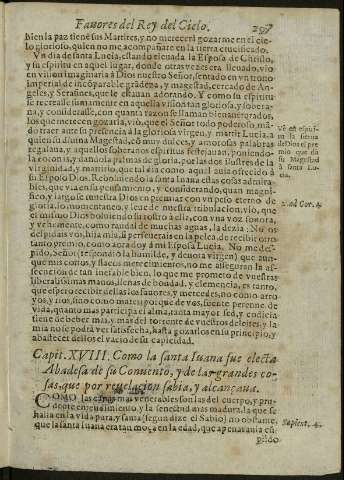 Fauores del Rey del Cielo. 297
bien la paz tiene sus Martires, y no merecerá gozarme en el cie-
lo glorioso, quien no me acompañare en la tierra crucificado.
Vn dia de santa Lucia, estando eleuada la Esposa de Christo,
y su espiritu en aquel lugar, donde otras vezes era lleuado, vio
en vision Imaginaria á Dios nuestro Señor, sentado en vn trono
imperial de grãdeza, y magestad, cercado de An-
geles, y Serafines, que le estauan adorando. Y como su espiritu
se recrease sumamente en aquella vision tan gloriosa, y sobera-
na, y considerasse, con quanta razon se llaman bienauenturados,
los que merecen gozarla, vio, que el Señor todo poderoso, mã-
dó traer ante su presencia á la gloriosa virgen, y martir Lucia, a
quien su diuina Magestad, cõ muy dulces, y amorosas palabras
regalaua, y aquellos soberanos espiritus festejauan, poniendo-
la corona, y dandola palmas de gloria, por las dos ilustres de la
virginidad, y martirio, que tal dia como aquel auia ofrecido á
su Esposo Dios.
bles, que via en su pensamiento, y considerando, quan magni-
fico, y largo es nuestro Dios en premiar con vn peso eterno de
gloria, lo momentaneo, y leue de nuestra tribulacion, vio, que
el mismo Dios boluiendo su rostro á ella, con vna voz sonora,
y vehemente, como raudal de muchas aguas, la dezia: No os
despidais vos, hija mia, si perseuerais en la pelea, de recibir otro
tanto premio, como aora doy á mi Esposa Lucia. No me des-
pido, señor (respondio la humilde, y deuota virgen) que aun-
que mis cortos, y flacos merecimientos, no me asseguran la as-
secucion de tan inefable bien, lo que me prometo de vuestras
liberalissimas manos, llenas de bondad, y clemencia, es tanto,
que espero recibir dellas los fauores, y mercedes, no como arro
yos, y rios, sino como mares; porque de vos, fuente perenne de
vida, quanto mas participa el alma, tanta mayor sed, y codicia
tiene de beber mas, y mas del torrente de vuestros deleites, y la
mia no se podrá ver satisfecha, hasta gozarlos en principio, y
abastecer dellos el vacio de su capacidad.
Capit. XVIII. Como la santa Iuana fue electa
Abadesa de su Conuento, y de las grandes co-
sas, que por reuelacion sabia, y alcançaua.
COMO las canas mas venerables son las del cuerpo, y pru-
la que se
halla en la vida para, y santa (segun dize el Sabio) no obstante,
que la santa Iuana era tan moça en la edad, que apenas auia cũ-
plido
Vé en espiri-
tu la fiesta
de Dios el pre
mio que da
su Magestad
á santa Lu-
cia.
2. ad Cor. 4.
Sapient. 4.